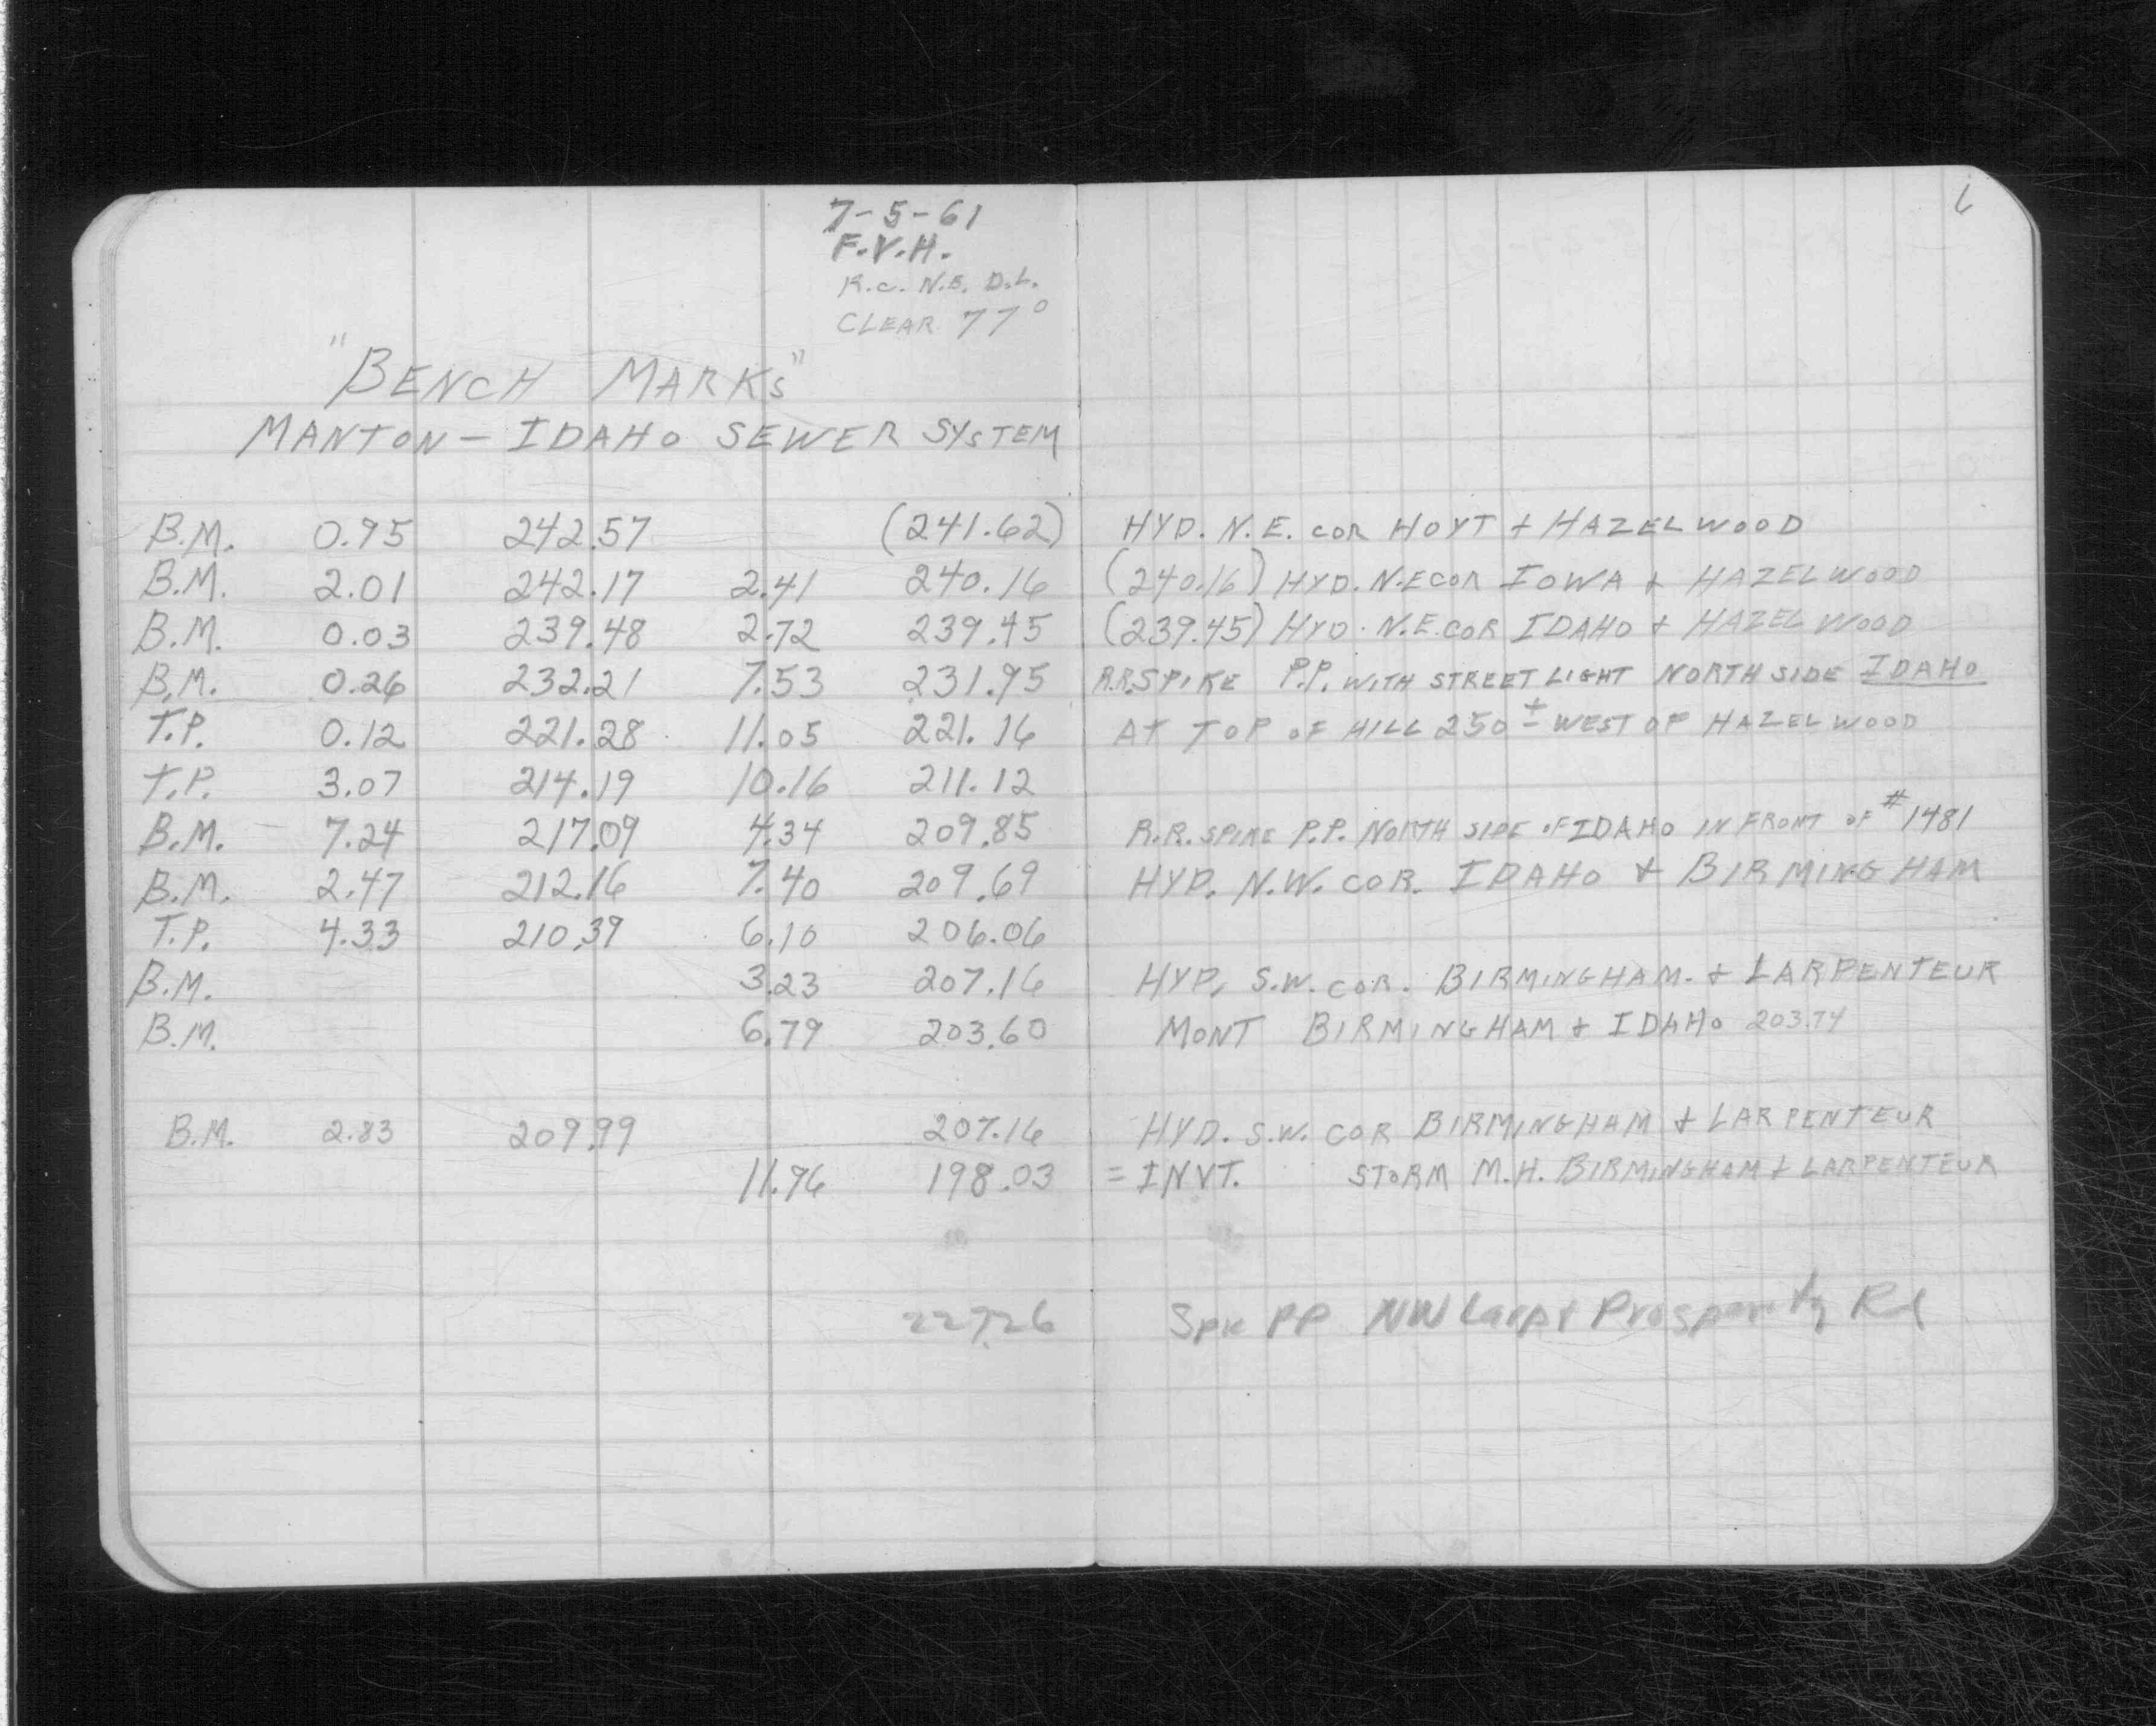 6
7-5-61
F.V.H.
R.C. N.E. D.L.
CLEAR 77°
"BENCH MARKS"
MANTON - IDAHO SEWER SYSTEM
B.M. 0.95 242.57 (241.62) HYD. N.E. COR HOYT + HAZELWOOD
B.M. 2.01 242.17 2.41 240.16 (240.16) HYD. N.E COR IOWA + HAZELWOOD
B.M. 0.03 239.48 2.72 239.45 (239.45) HYD. N.E. COR IDAHO + HAZELWOOD
B.M. 0.26 232.21 7.53 231.95 R.R. SPIKE P.P. WITH STREET LIGHT NORTH SIDE IDAHO
T.P. 0.12 221.28 11.05 221.16 AT TOP OF HILL 250 ± WEST OF HAZELWOOD
T.P. 3.07 214.19 10.16 211.12
B.M. 7.24 217.09 4.34 209.85 R.R. SPIKE P.P. NORTH SIDE OF IDAHO IN FRONT OF #1481
B.M. 2.47 212.16 7.40 209.69 HYD. N.W. COR. IDAHO + BIRMINGHAM
T.P. 4.33 210.39 6.10 206.06
B.M. 3.23 207.16 HYD. S.W. COR. BIRMINGHAM. + LARPENTEUR
B.M. 6.79 203.60 MONT BIRMINGHAM + IDAHO 203.74
B.M. 2.83 209.99 207.16 HYD. S.W. COR BIRMINGHAM + LARPENTEUR
11.96 198.03 = INVT. STORM M.H. BIRMINGHAM + LARPENTEUR
227.26 Spk PP NW Larp + Prosperity Rd